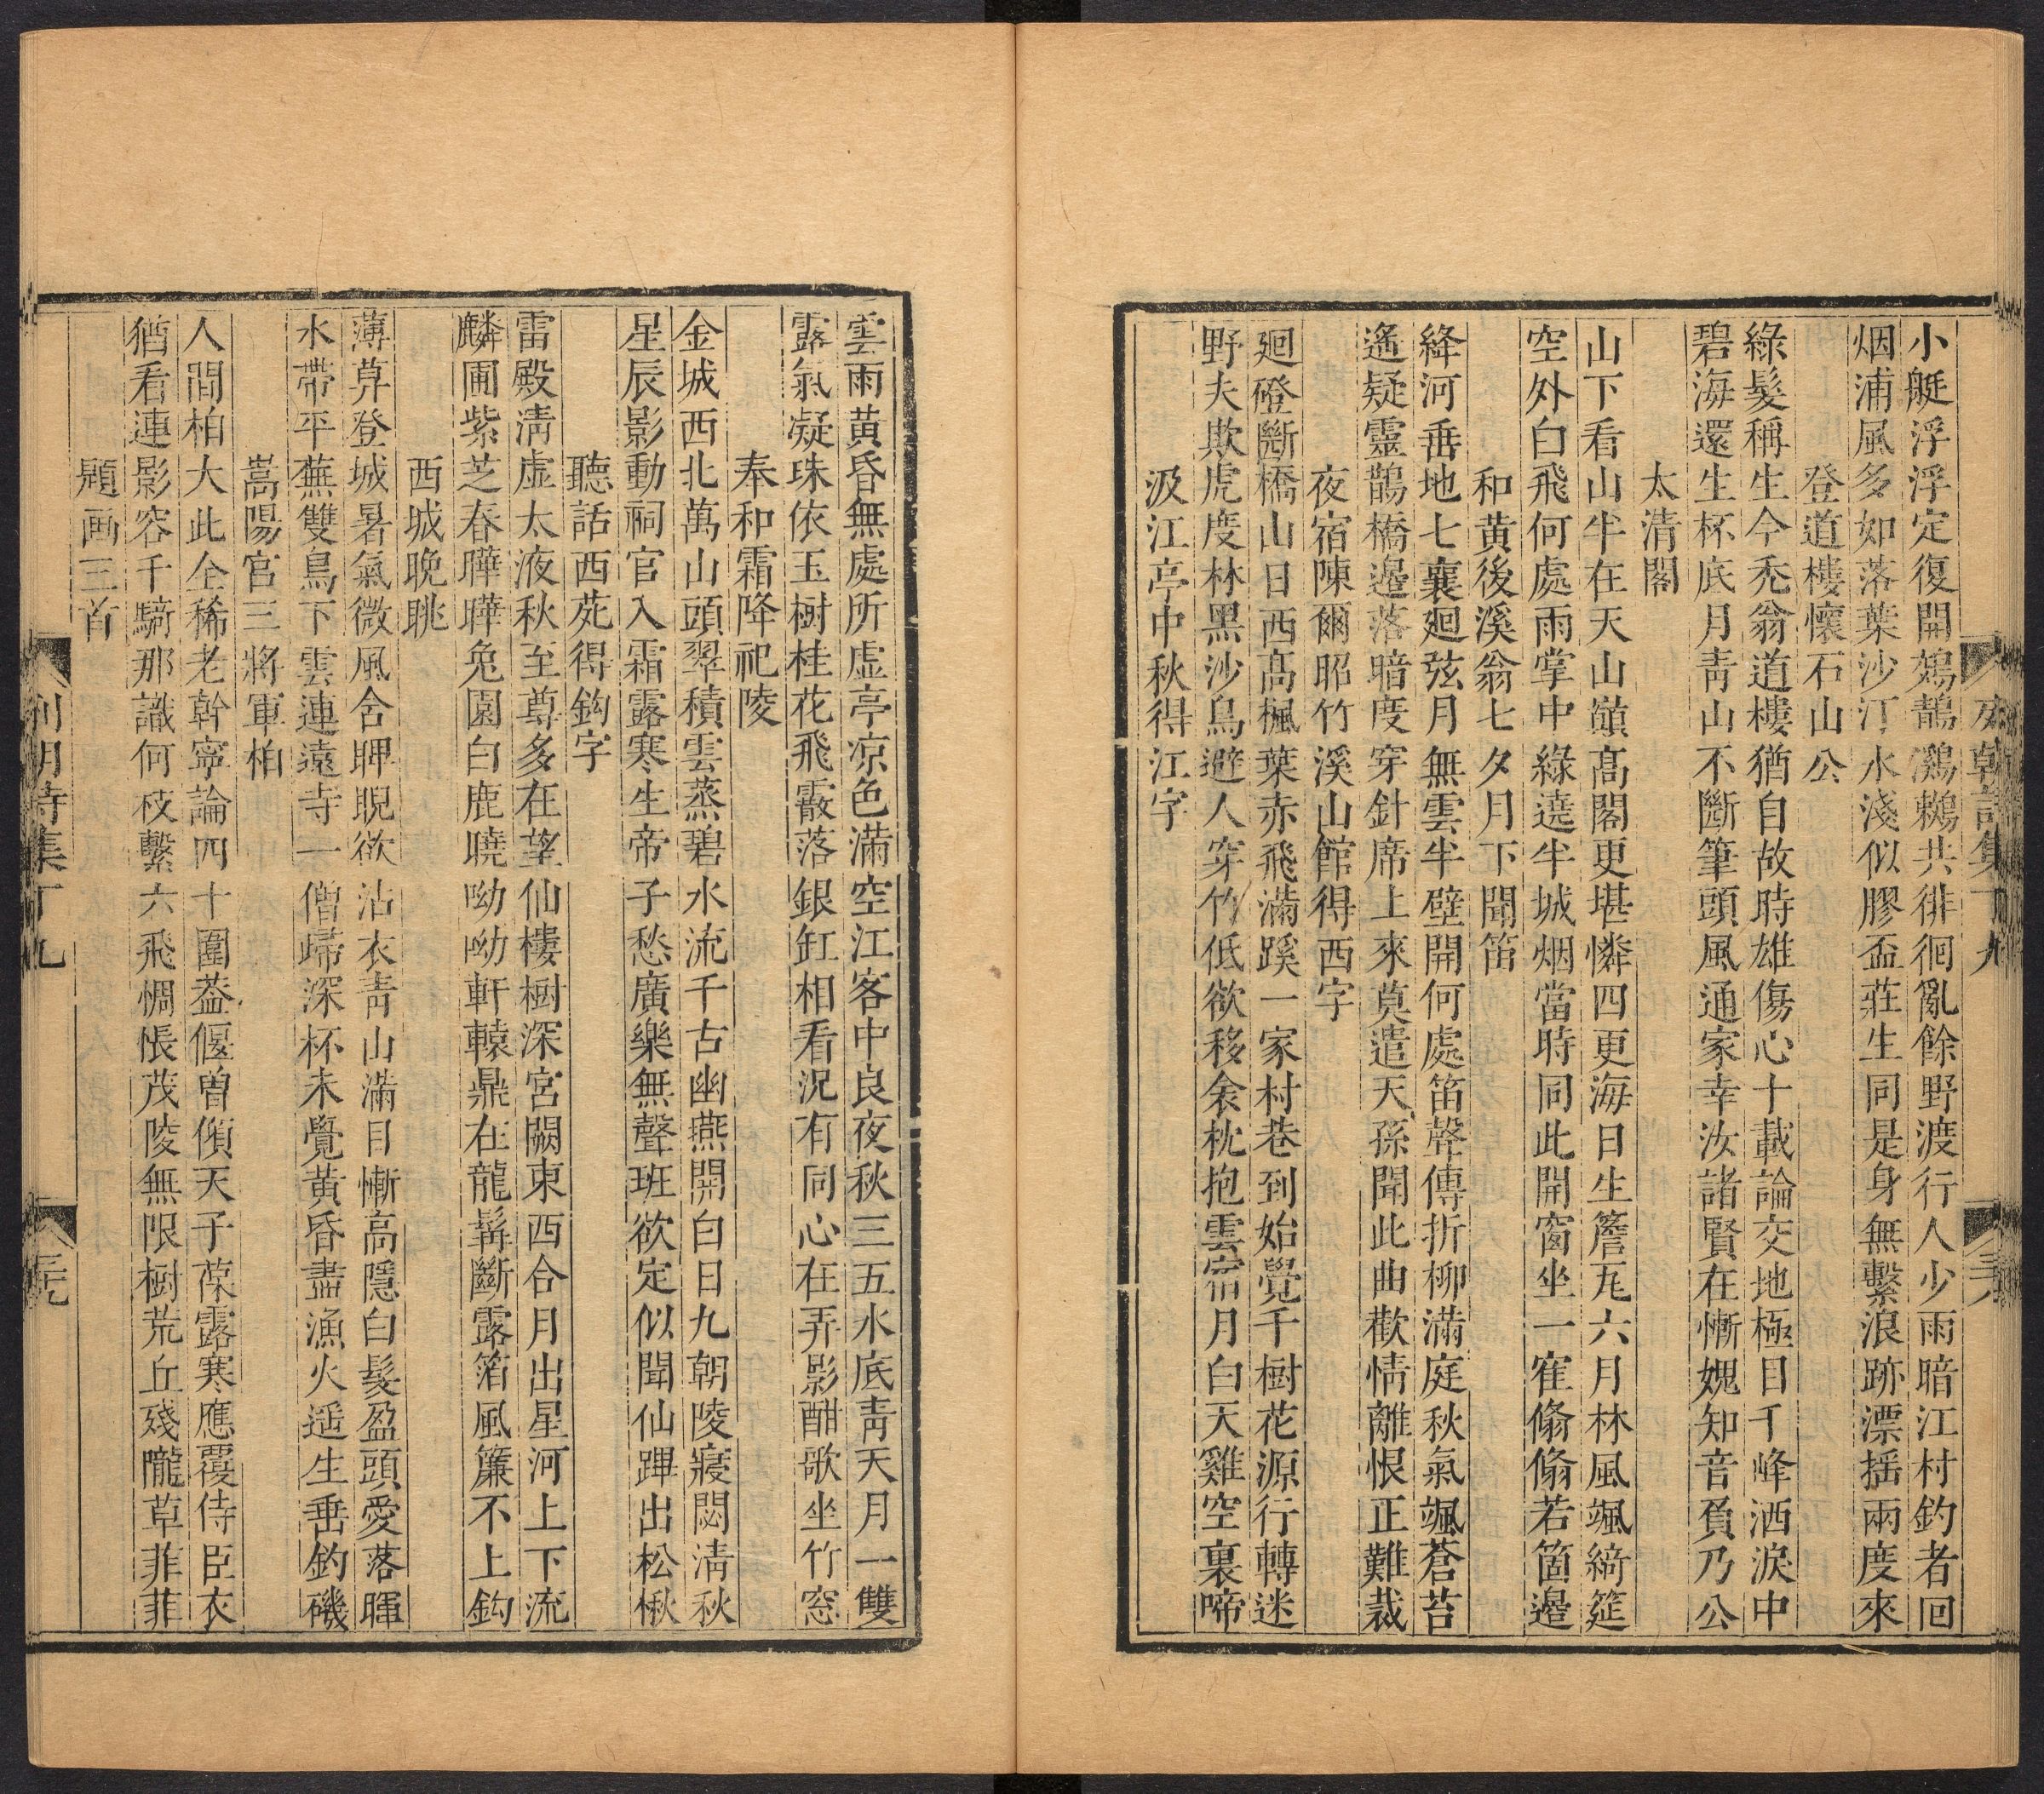 小艇浮浮定復開鵁鶄鸂鶒共徘徊亂餘野渡行人少雨暗江村釣者回
烟浦風多如落葉沙汀水淺似膠盃莊生同是身無繫浪跡漂揺兩度來
登道樓懷石山公
綠髮稱生今禿翁道樓猶自故時雄傷心十載論交地極目千峰洒淚中
碧海還生杯底月靑山不斷筆頭風通家幸汝諸賢在慚媿知音負乃公
太清閣
山下看山半在天山頭高閣更堪憐四更海日生簷瓦六月林風颯綺筵
空外白飛何處雨掌中綠遶半城烟當時同此開窗坐一隺翛翛若箇邊
和黃後溪翁七夕月下聞笛
絳河垂地七襄廻弦月無雲半壁開何處笛聲傳折柳滿庭秋氣颯蒼苔
遙疑靈鵲橋邊落暗度穿針席上來莫遣天孫聞此曲歡情離恨正難裁
夜宿陳爾昭竹溪山館得西字
廻磴斷橋山日西高楓葉赤飛滿蹊一家村巷到始覺千樹花源行轉迷
野夫欺虎度林黑沙鳥避人穿竹低欲移衾枕抱雲宿月白天雞空裏啼
汲江亭中秋得江字
雲雨黃昏無處所虛亭凉色滿空江客中良夜秋三五水底靑天月一雙
露氣凝珠依玉樹桂花飛霰落銀缸相看況有同心在弄影酣歌坐竹窓
奉和霜降祀陵
金城西北萬山頭翠積雲蒸碧水流千古幽燕開白日九朝陵寢閟淸秋
星辰影動祠官入霜露寒生帝子愁廣樂無聲班欲定似聞仙蹕出松楸
聽話西苑得鈎字
雷殿淸虛太液秋至尊多在望仙樓樹深宮闕東西合月出星河上下流
麟圃紫芝春曄曄兔園白鹿曉呦呦軒轅鼎在龍髯斷露箔風簾不上鈎
西城晚眺
薄莫登城暑氣微風含睥睨欲沾衣靑山滿目慚高隱白髮盈頭愛落暉
水帶平蕪雙鳥下雲連遠寺一僧歸深杯未覺黃昏盡漁火遥生垂釣磯
嵩陽宮三將軍柏
人間柏大此全稀老幹寧論四十圍葢偃曾傾天子葆露寒應覆侍臣衣
猶看連影容千騎那識何枝繫六飛惆悵茂陵無限樹荒丘殘隴草菲菲
題画三首
列朝詩集丁九